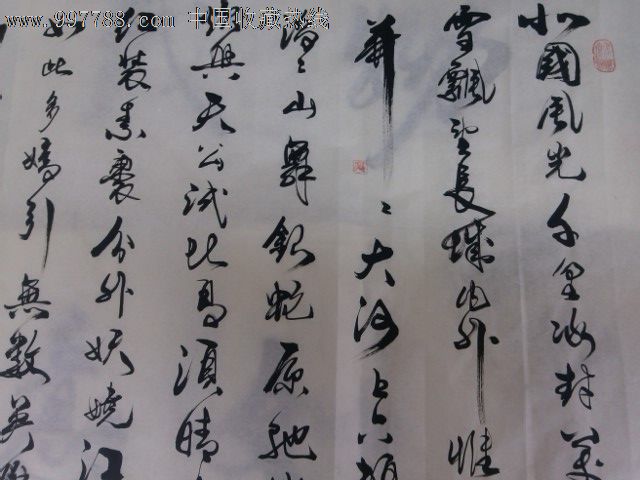 www.997788.com 中国收藏热线
北國風光千里冰封萬
雪飄望長城內外惟
莽〻大河上下頓
滔〻山舞銀蛇原馳
欲與天公試比高須晴
紅裝素裹分外妖嬈江
如此多嬌引無數英